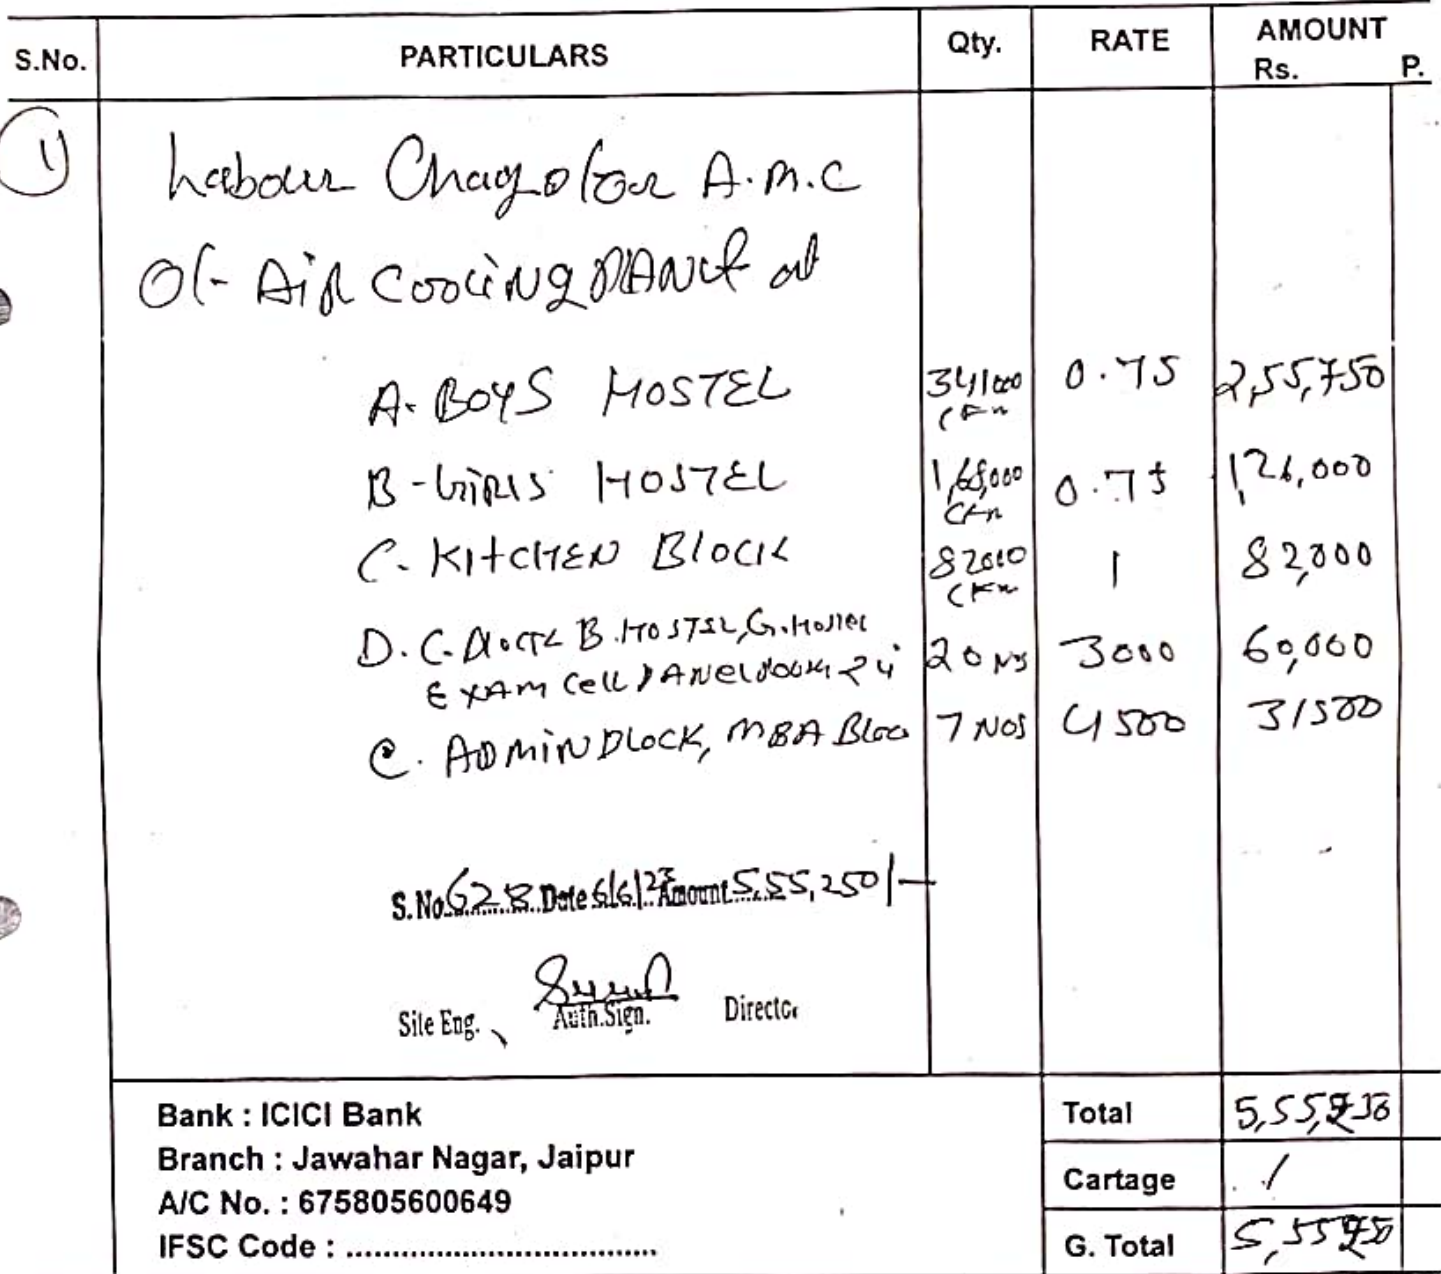 S.No. PARTICULARS Qty. RATE AMOUNT
Rs. P.
1) Labour Chargs for A.M.C
Of Air Cooling Plant at
A. BOYS HOSTEL 341000 0.75 2,55,750
CFM
B - Girls HOSTEL 1,68,000 0.75 1,26,000
CFM
C. KITCHEN Block 82000 1 82,000
CFM
D. C. Block B. HOSTEL, G. Hostel
EXAM Cell 24" 20 Nos 3000 60,000
e. ADMIN BLOCK, MBA Bloc 7 NOS 4500 31500
S. No. 628 Date 6/6/23 Amount 5,55,250/-
Site Eng. Auth.Sign. Director
Bank : ICICI Bank Total 5,55,250
Branch : Jawahar Nagar, Jaipur
A/C No. : 675805600649 Cartage /
IFSC Code : .................................. G. Total 5,55,250